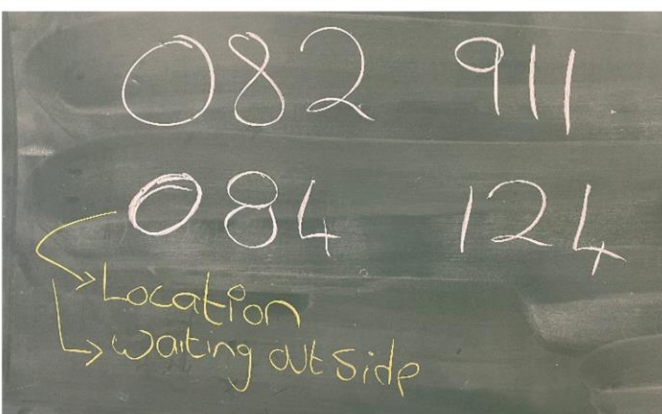 082 911
084 124
Location
waiting outside